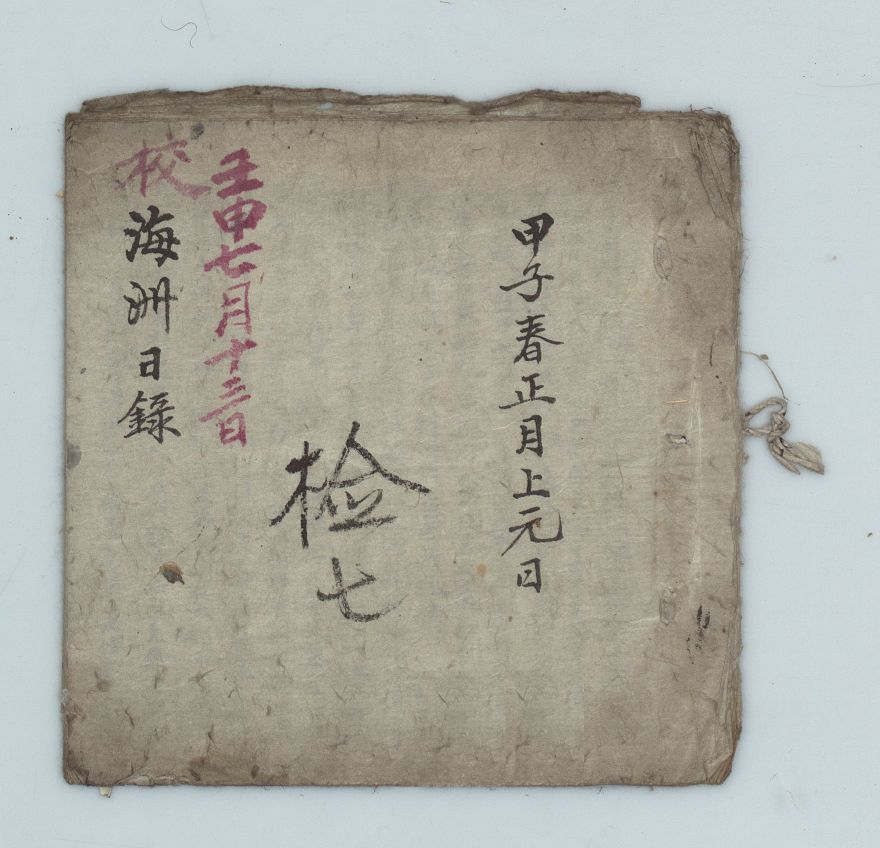 甲子春正月上元日
检七
壬申七月十三日
校海洲日録